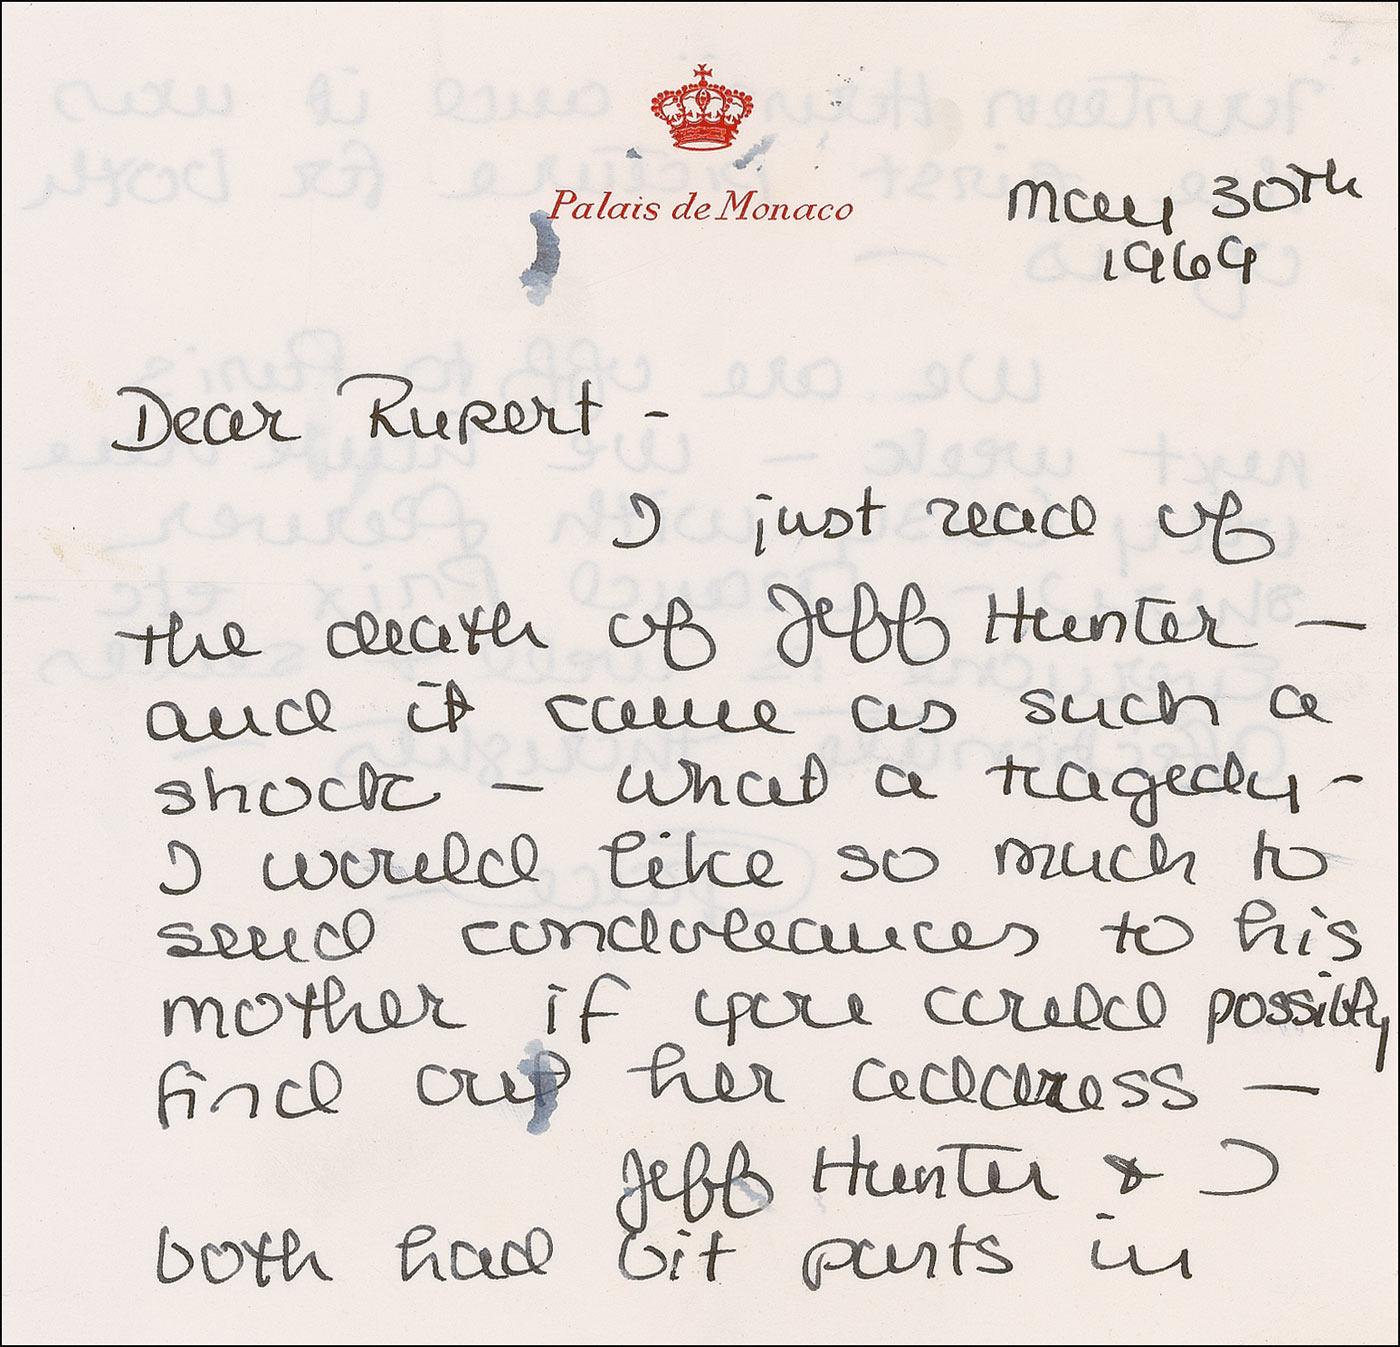 Palais de Monaco
May 30th
1969
Dear Rupert -
I just read of
the death of Jeff Hunter —
and it came as such a
shock — what a tragedy -
I would like so much to
send condoleances to his
mother if you could possibly
find out her address —
Jeff Hunter & I
both had bit parts in